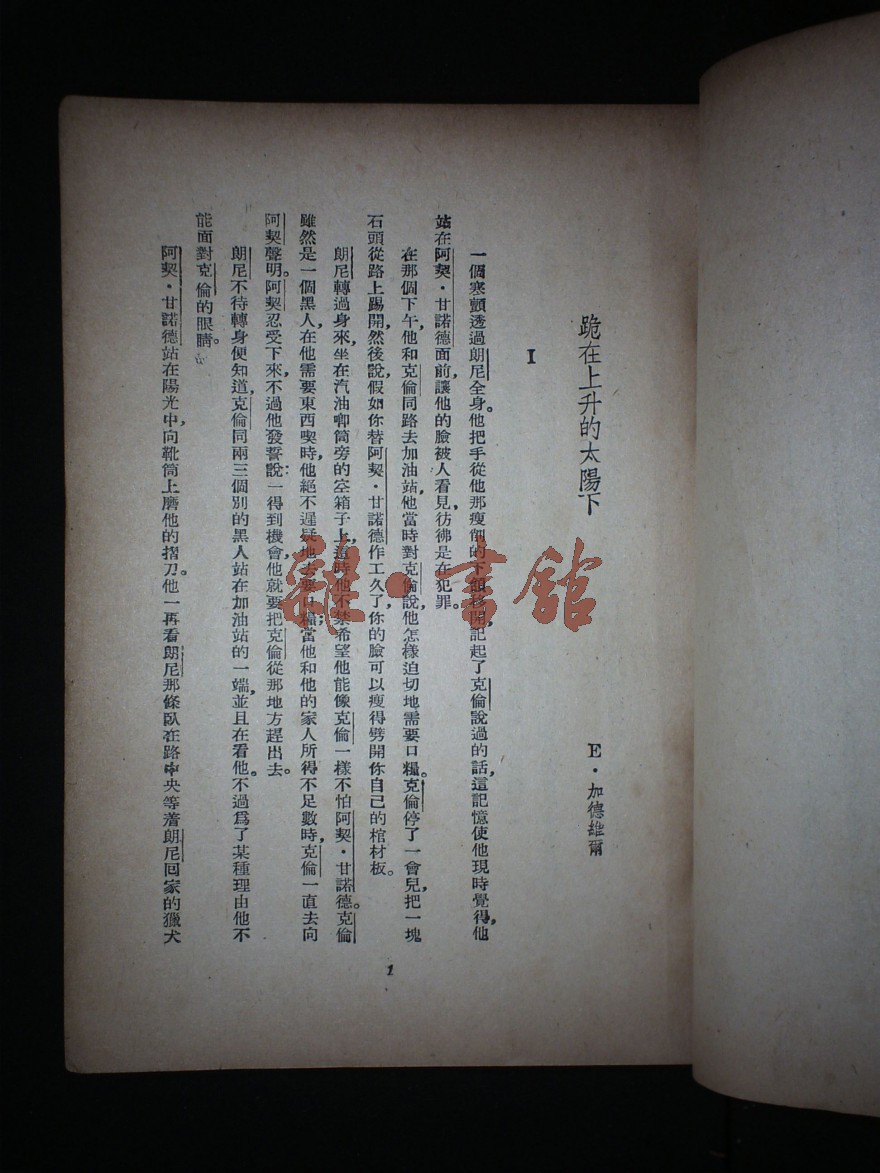 跪在上升的太陽下
E·加德維爾
I
一個寒顫透過朗尼全身。他把手從他那瘦削的下頷移開,記起了克倫說過的話,這記憶使他現時覺得,他
站在阿契·甘諾德面前,讓他的臉被人看見,彷彿是在犯罪。
在那個下午,他和克倫同路去加油站,他當時對克倫說,他怎樣迫切地需要口糧。克倫停了一會兒,把一塊
石頭從路上踢開,然後說,假如你替阿契·甘諾德作工久了,你的臉可以瘦得劈開你自己的棺材板。
朗尼轉過身來,坐在汽油唧筒旁的空箱子上,這時他不禁希望他能像克倫一樣不怕阿契·甘諾德。克倫
雖然是一個黑人,在他需要東西喫時,他絕不遲疑地去要口糧;當他和他的家人所得不足數時,克倫一直去向
阿契聲明。阿契忍受下來,不過他發誓說:一得到機會,他就要把克倫從那地方趕出去。
朗尼不待轉身便知道,克倫同兩三個別的黑人站在加油站的一端,並且在看他。不過爲了某種理由他不
能面對克倫的眼睛。
阿契·甘諾德站在陽光中,向靴筒上磨他的摺刀。他一再看朗尼那條臥在路中央等着朗尼回家的獵犬
1
雜·書館